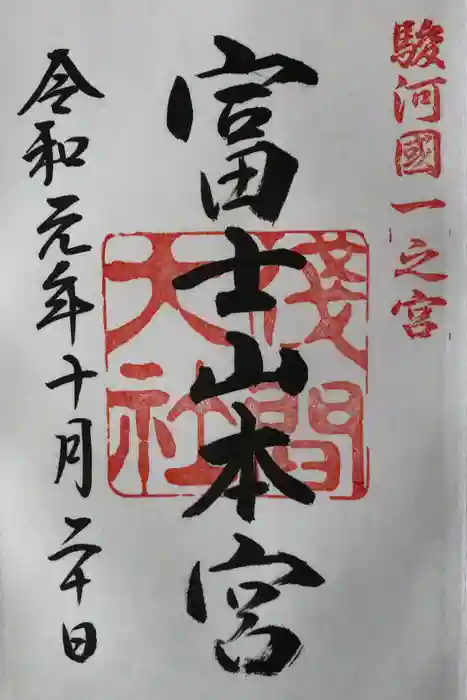 駿河國一之宮
富士山本宮
淺間
大社
令和元年十月二十日